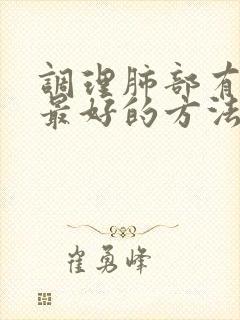 調理肺部有
最好的方法
崔勇峰